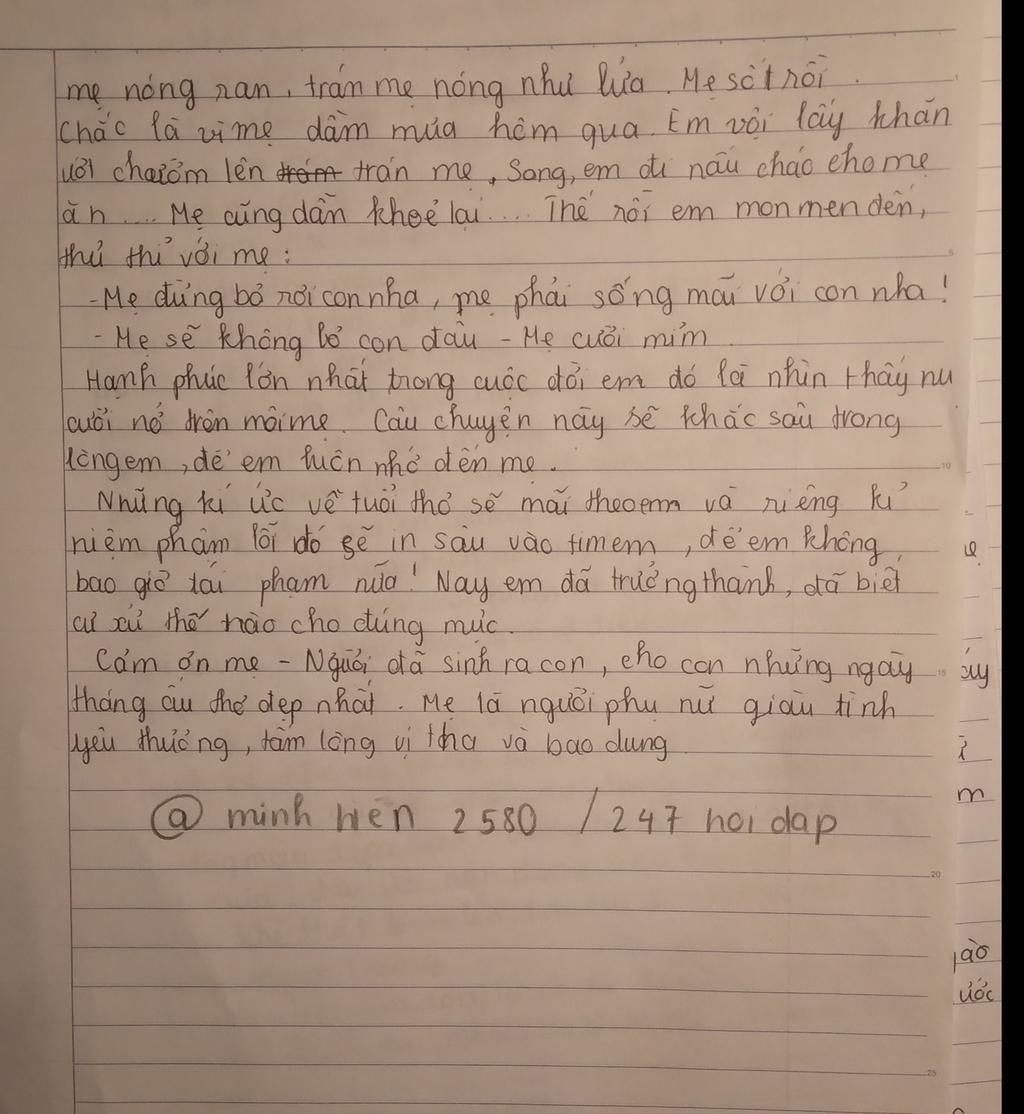 mẹ nóng ran, trán mẹ nóng như lửa. Mẹ sốt rồi.
Chắc là vì mẹ dầm mưa hôm qua. Em vội lấy khăn
ướt chườm lên trán mẹ, Song, em đi nấu cháo cho mẹ
ăn .... Mẹ cũng dần khoẻ lại .... Thế rồi em mon men đến,
thủ thỉ với mẹ :
- Mẹ đừng bỏ rơi con nha, mẹ phải sống mãi với con nha !
- Mẹ sẽ không bỏ con đâu - Mẹ cười mỉm
Hạnh phúc lớn nhất trong cuộc đời em đó là nhìn thấy nụ
cười nở trên môi mẹ. Câu chuyện này sẽ khắc sâu trong
lòng em, để em luôn nhớ đến mẹ.
Những kí ức về tuổi thơ sẽ mãi theo em và riêng kỉ
niệm phạm lỗi đó sẽ in sâu vào tim em, để em không
bao giờ tái phạm nữa ! Nay em đã trưởng thành, đã biết
cư xử thế nào cho đúng mực.
Cảm ơn mẹ - Người đã sinh ra con, cho con những ngày
tháng ấu thơ đẹp nhất. Mẹ là người phụ nữ giàu tình
yêu thương, tấm lòng vị tha và bao dung
@ minh hien 2580 / 247 hoi dap